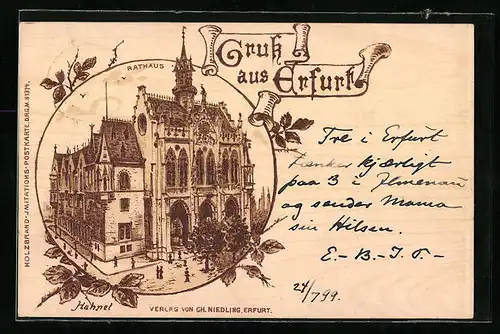 Gruß
aus Erfurt
RATHAUS
HOLZBRAND-IMITATIONS-POSTKARTE. D.R.G.M. 81374.
Tre i Erfurt
tænker kjærligt
paa 3 i Ilmenau
og sender Mama
sin Hilsen.
E.-B.-I.T.-
24/7 99.
Hähnel
VERLAG VON CH. NIEDLING, ERFURT.